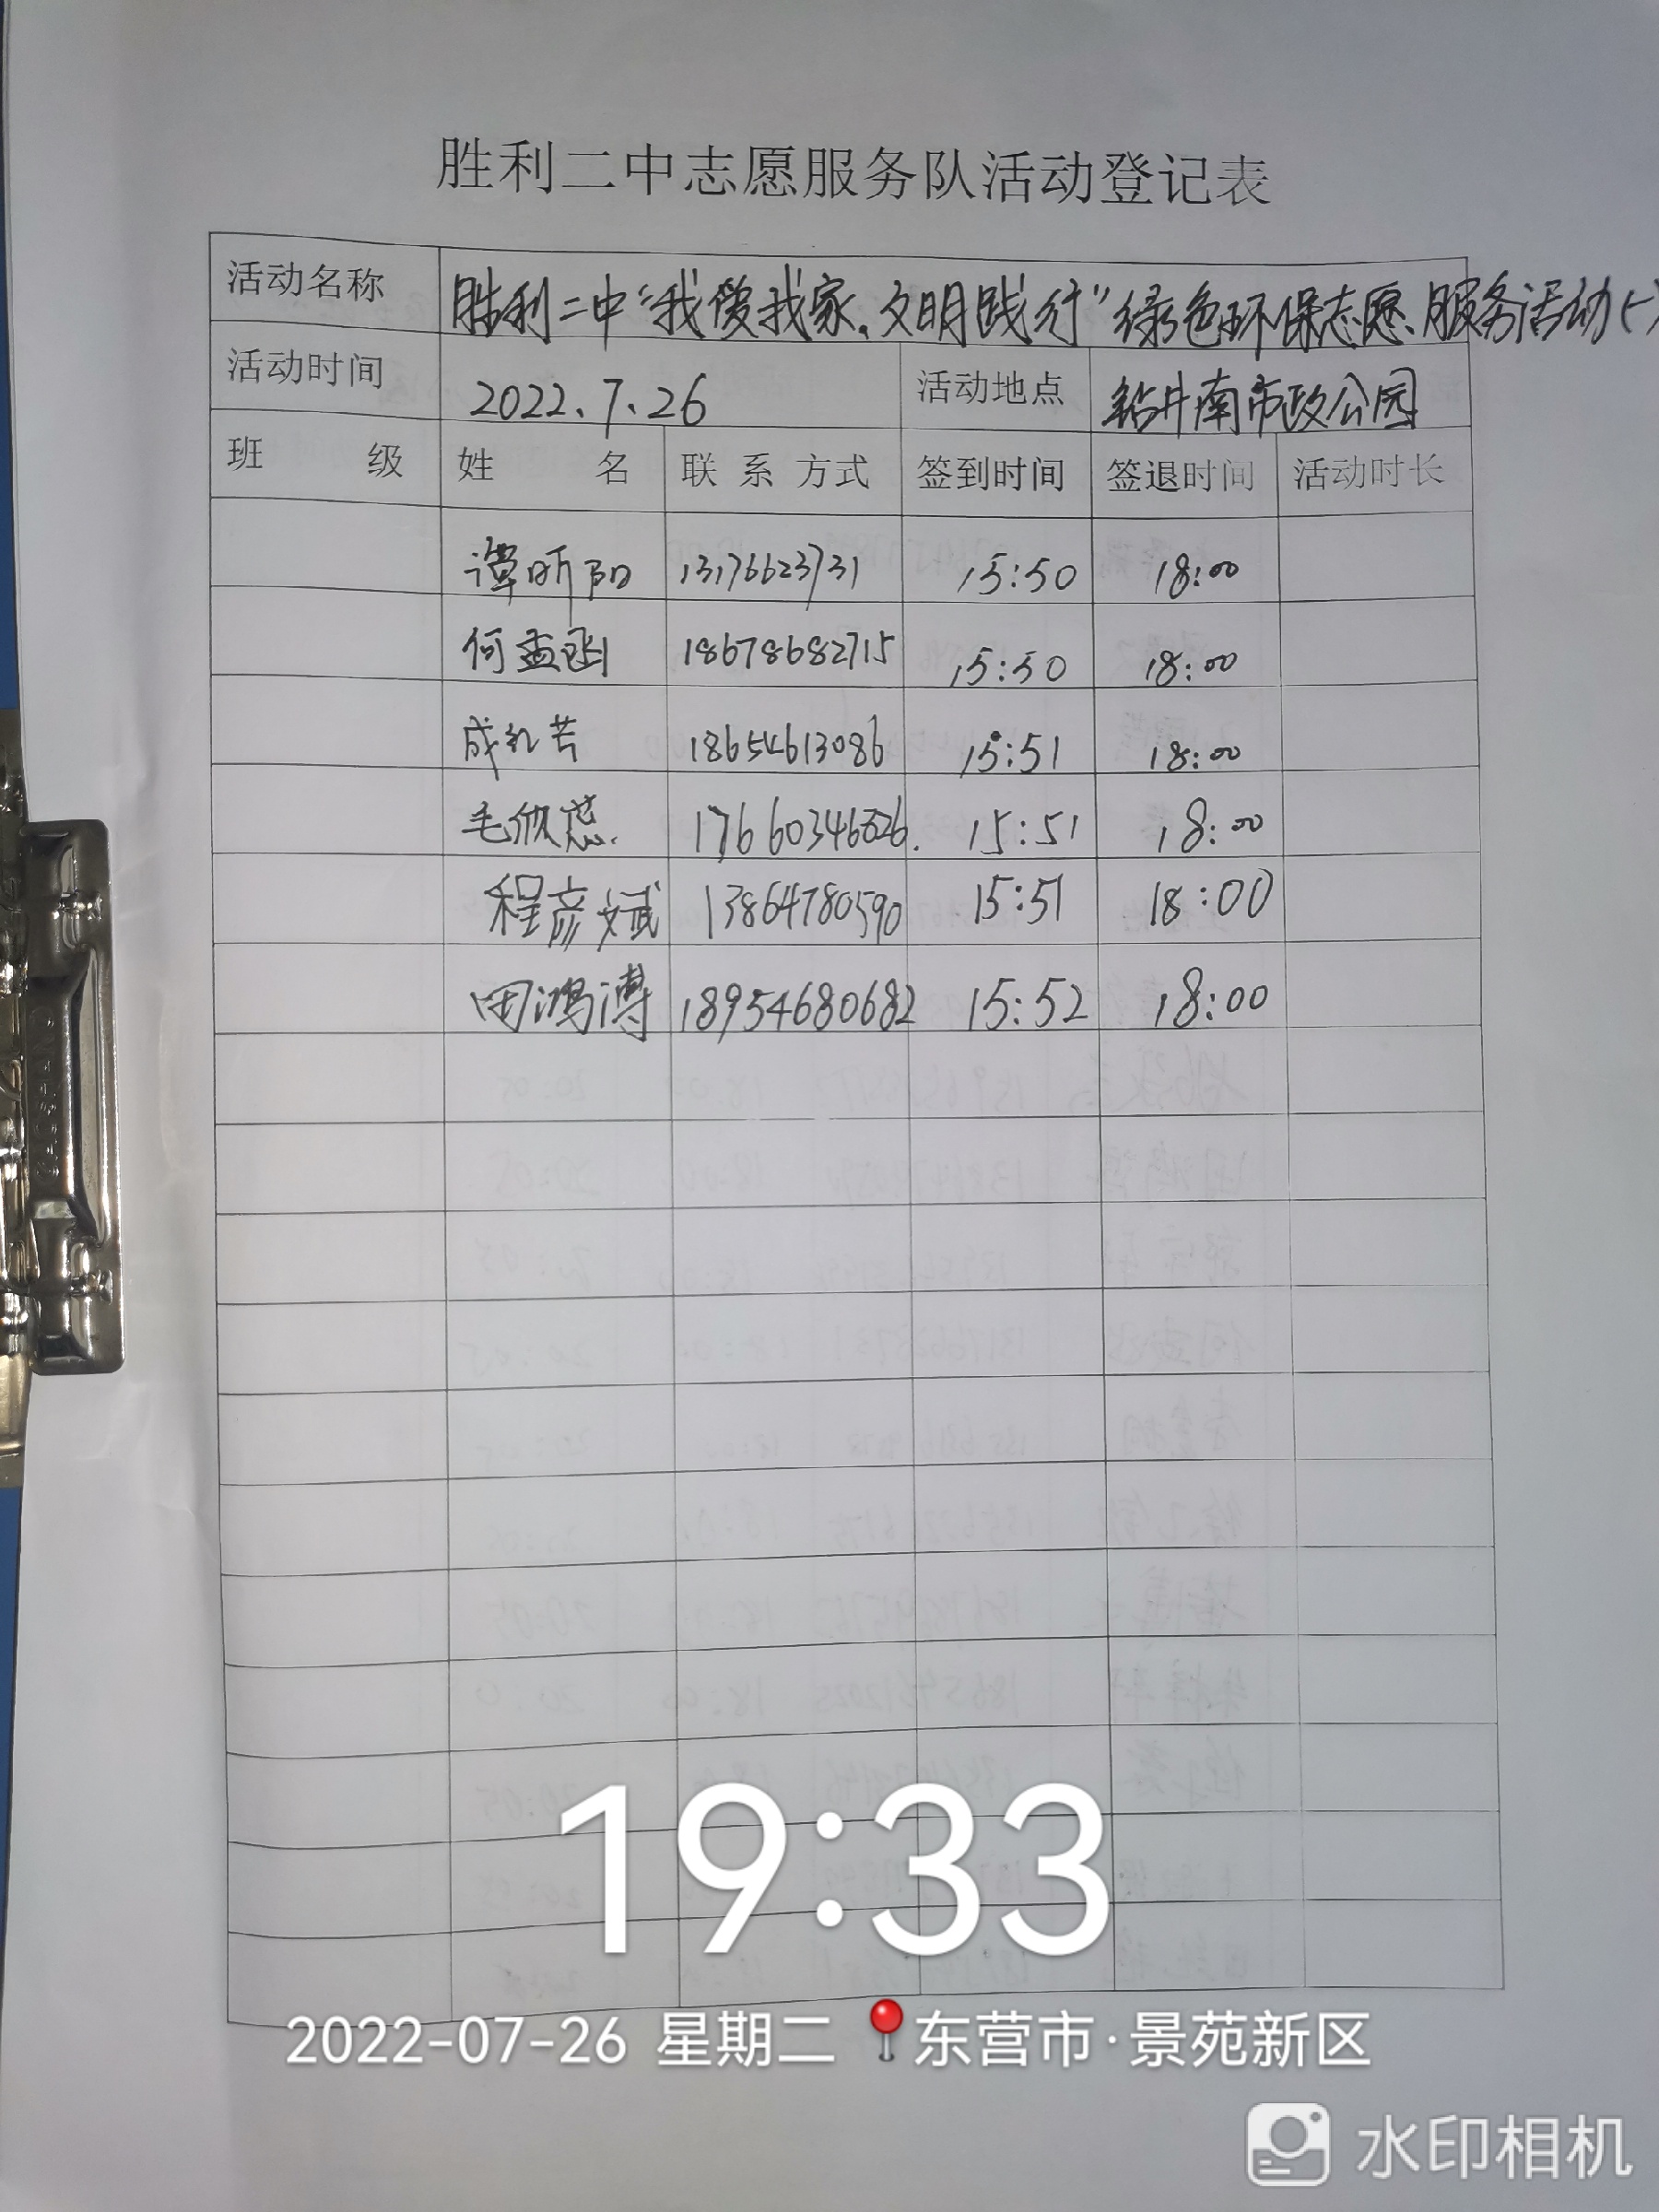 胜利二中志愿服务队活动登记表
活动名称 胜利二中“我爱我家,文明践行”绿色环保志愿服务活动(一)
活动时间 2022.7.26 活动地点 钻井南市政公园
班 级 姓 名 联系方式 签到时间 签退时间 活动时长
谭昕阳 13176623731 15:50 18:00
何孟函 18678682715 15:50 18:00
成礼芸 18654613086 15:51 18:00
毛欣蕊. 17660346626. 15:51 18:00
程彦斌 13864780590 15:51 18:00
田鸿溥 18954680682 15:52 18:00
19:33
2022-07-26 星期二 东营市·景苑新区
水印相机